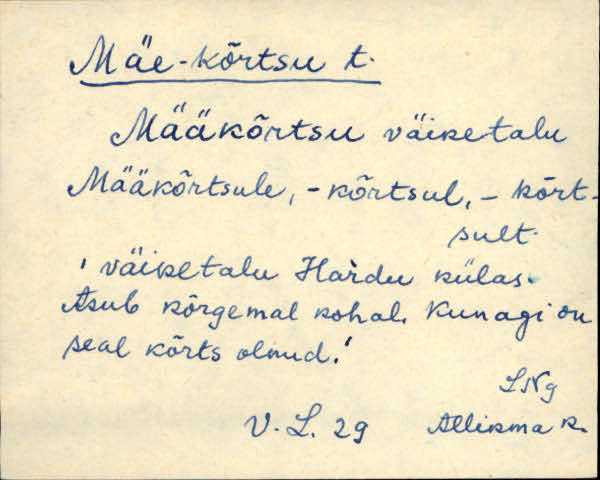 Mäe-kõrtsu t.
Määkõrtsu väiketalu
Määkõrtsule, -kõrtsul, - kõrt-
sult.
' väiketalu Hardu külas.
Asub kõrgemal kohal. Kunagi on
seal kõrts olnud.'
LNg
V. L. 29 Allikma k.